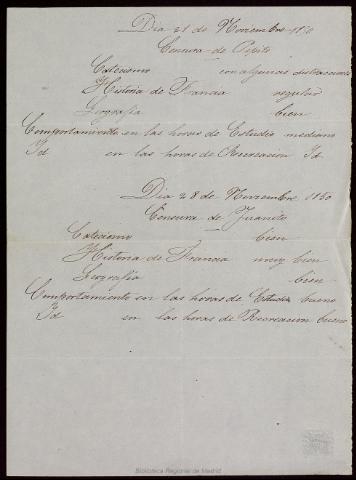 Dia 21 de Noviembre 1860
Censura de Pepito
Catecismo con algunas distracciones
Historia de Francia regular
Geografia bien
Comportamiento en las horas de Estudio mediano
Id en las horas de Recreacion Id
Dia 28 de Noviembre 1860
Censura de Juanito
Catecismo bien
Historia de Francia muy bien
Geografia bien
Comportamiento en las horas de Estudio bueno
Id en las horas de Recreacion bueno
Biblioteca Regional de Madrid